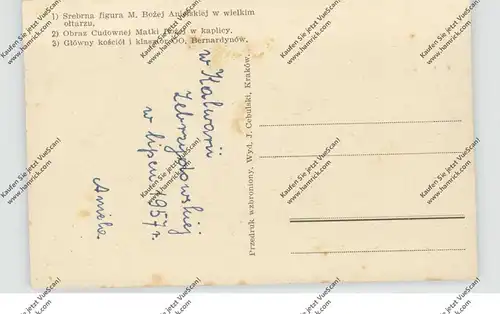 1) Srebrna figura M. Bożej Anielskiej w wielkim
ołtarzu,
2) Obraz Cudownej Matki Bożej w kaplicy,
3) Główny kościół i klasztor OO. Bernardynów.
w Kalwarii
Zebrzydowskiej
w lipcu 1957 r.
Przedruk wzbroniony. Wyd. J. Cebulski, Kraków.
Kaufen Sie jetzt VueScan!
www.hamrick.com